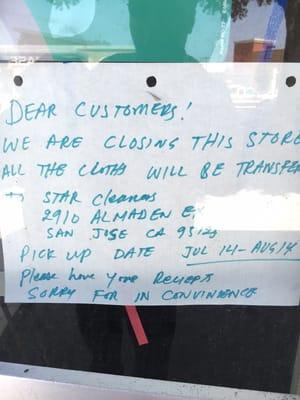 DEAR CUSTOMERS!
WE ARE CLOSING THIS STORE
ALL THE CLOTHS WILL BE TRANSFE
TO STAR Cleaners
2910 ALMADEN EX
SAN JOSE CA
PICK UP DATE JUL 14 - AUG 14
Please have your RECIEPT
SORRY FOR IN CONVINIENCE